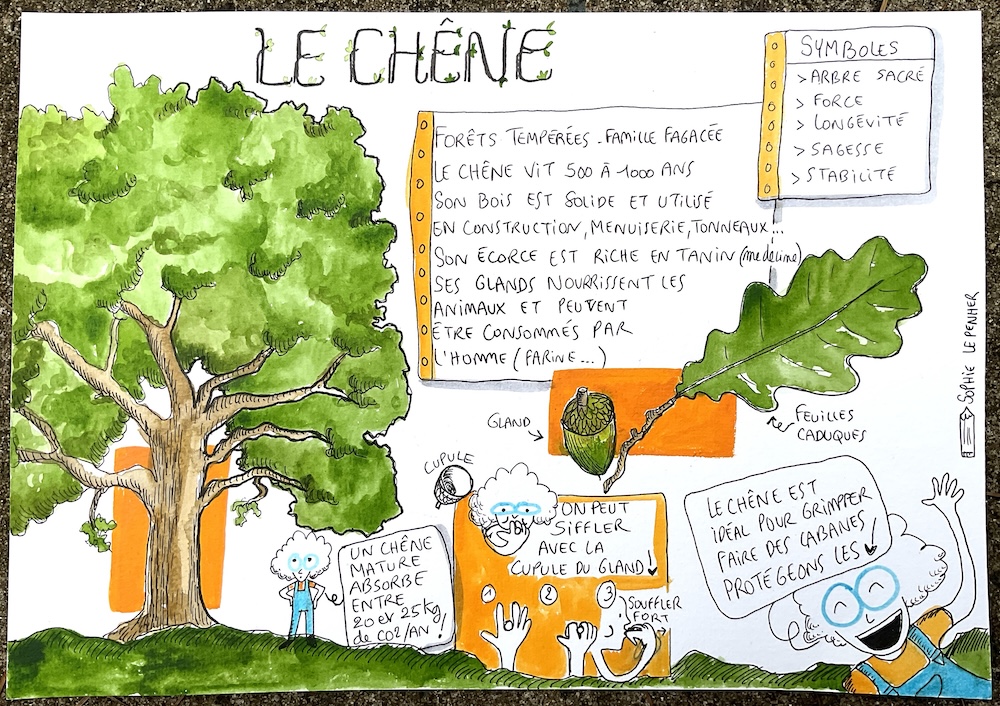 LE CHÊNE
SYMBOLES
> ARBRE SACRÉ
> FORCE
> LONGÉVITÉ
> SAGESSE
> STABILITÉ
FORÊTS TEMPÉRÉES - FAMILLE FAGACÉE
LE CHÊNE VIT 500 À 1000 ANS
SON BOIS EST SOLIDE ET UTILISÉ
EN CONSTRUCTION, MENUISERIE, TONNEAUX...
SON ÉCORCE EST RICHE EN TANIN (médecine)
SES GLANDS NOURRISSENT LES
ANIMAUX ET PEUVENT
ÊTRE CONSOMMÉS PAR
L'HOMME (FARINE...)
GLAND
FEUILLES
CADUQUES
SOPHIE LE PENHER
CUPULE
UN CHÊNE
MATURE
ABSORBE
ENTRE
20 et 25 kg
de CO2/AN !
ON PEUT
SIFFLER
AVEC LA
CUPULE DU GLAND
1 2 3
SOUFFLER
FORT
LE CHÊNE EST
IDÉAL POUR GRIMPER
FAIRE DES CABANES
PROTÉGEONS LES !